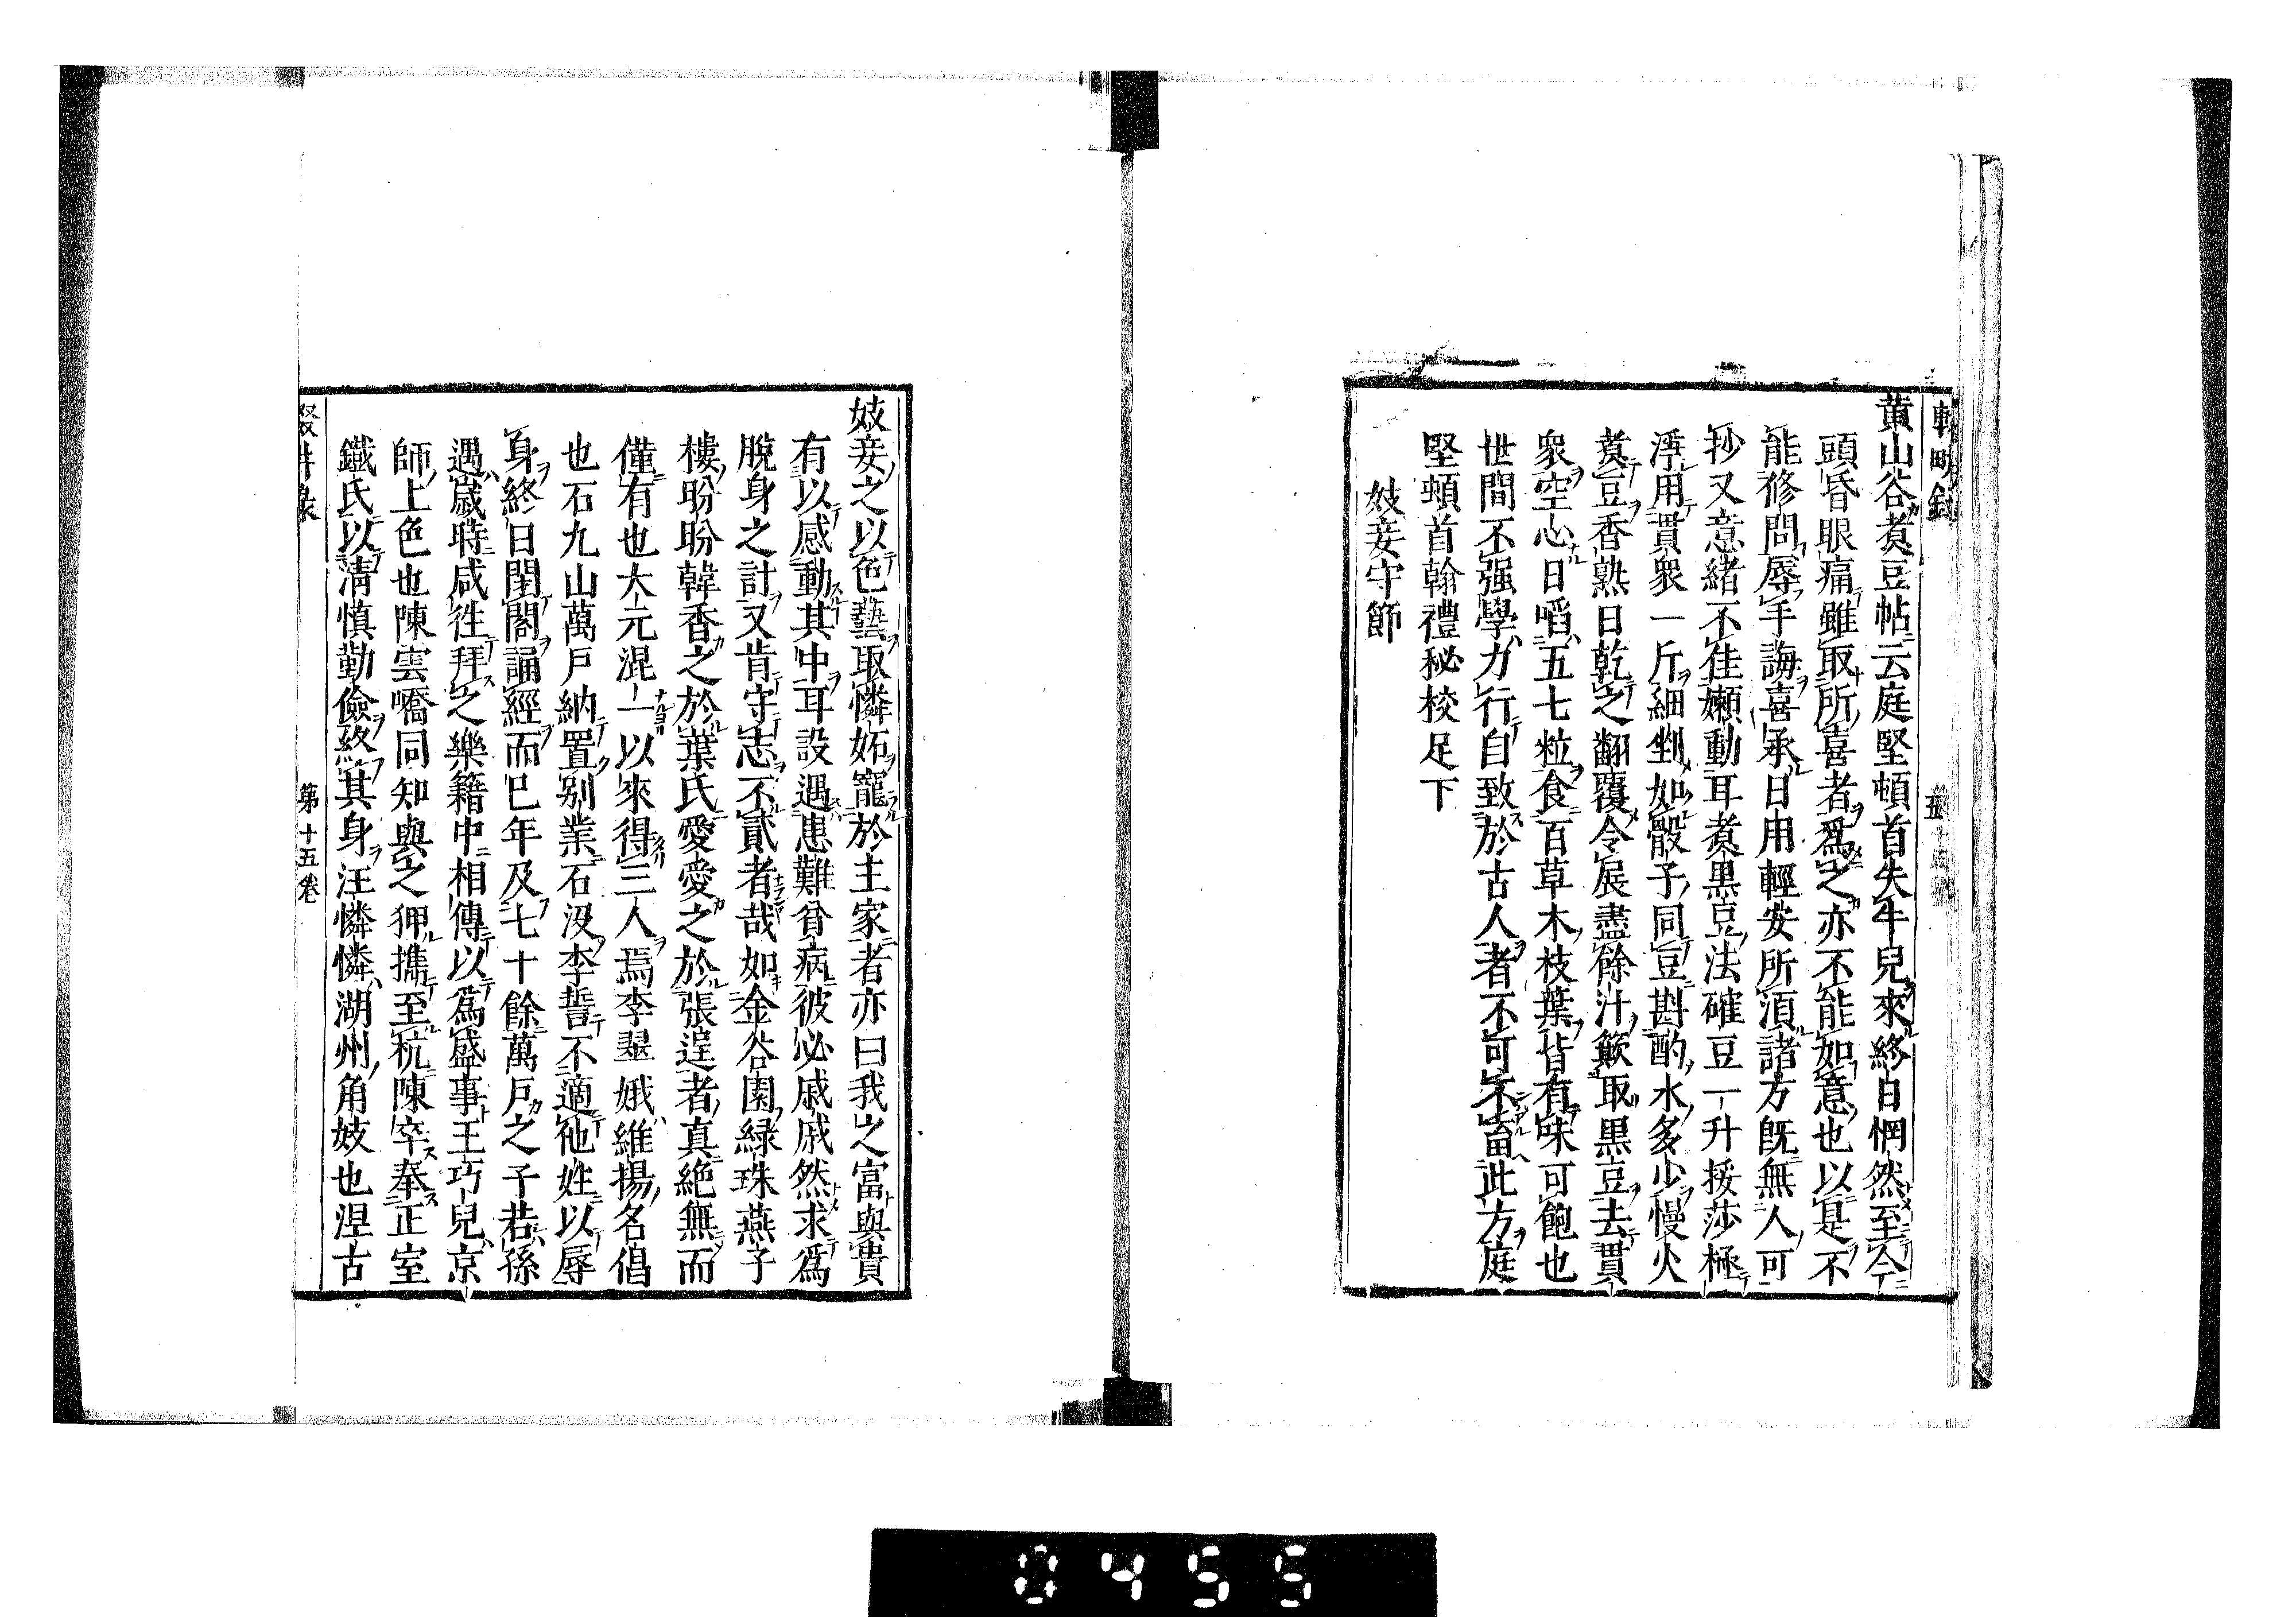 黄山谷煑豆帖云庭堅頓首失牛兒來終日惘然至今
頭昏眼痛雖取所喜者爲之亦不能如意也以是不
能修問辱手誨喜承日用輕安所湏諸方既無人可
抄又意緒不佳嬾動耳煑黒豆法確豆一升挼莎極
淨用貫衆一斤細剉如骰子同豆斟酌水多少慢火
煑豆香熟日乾之翻覆令展盡餘汁簸取黒豆去貫
衆空心日啗五七粒食百草木枝葉皆有味可飽也
世間不强學力行自致於古人者不可不畜此方庭
堅頓首翰禮秘校足下
妓妾守節
妓妾之以色藝取憐妬寵於主家者亦曰我之富與貴
有以感動其中耳設遇患難貧病彼必戚戚然求爲
脫身之計又肯守志不貳者哉如金谷園綠珠燕子
樓盼盼韓香之於葉氏愛愛之於張逞者真絕無而
僅有也大元混一以來得三人焉李翠娥維揚名倡
也石九山萬戸納置别業石没李誓不適他姓以辱
身終日閉閣誦經而已年及七十餘萬戸之子若孫
遇歲時咸徃拜之樂籍中相傳以爲盛事王巧兒京
師上色也陳雲嶠同知與之狎擕至杭陳卒奉正室
鐵氏以清慎勤儉終其身汪憐憐湖州角妓也涅古
第十五卷